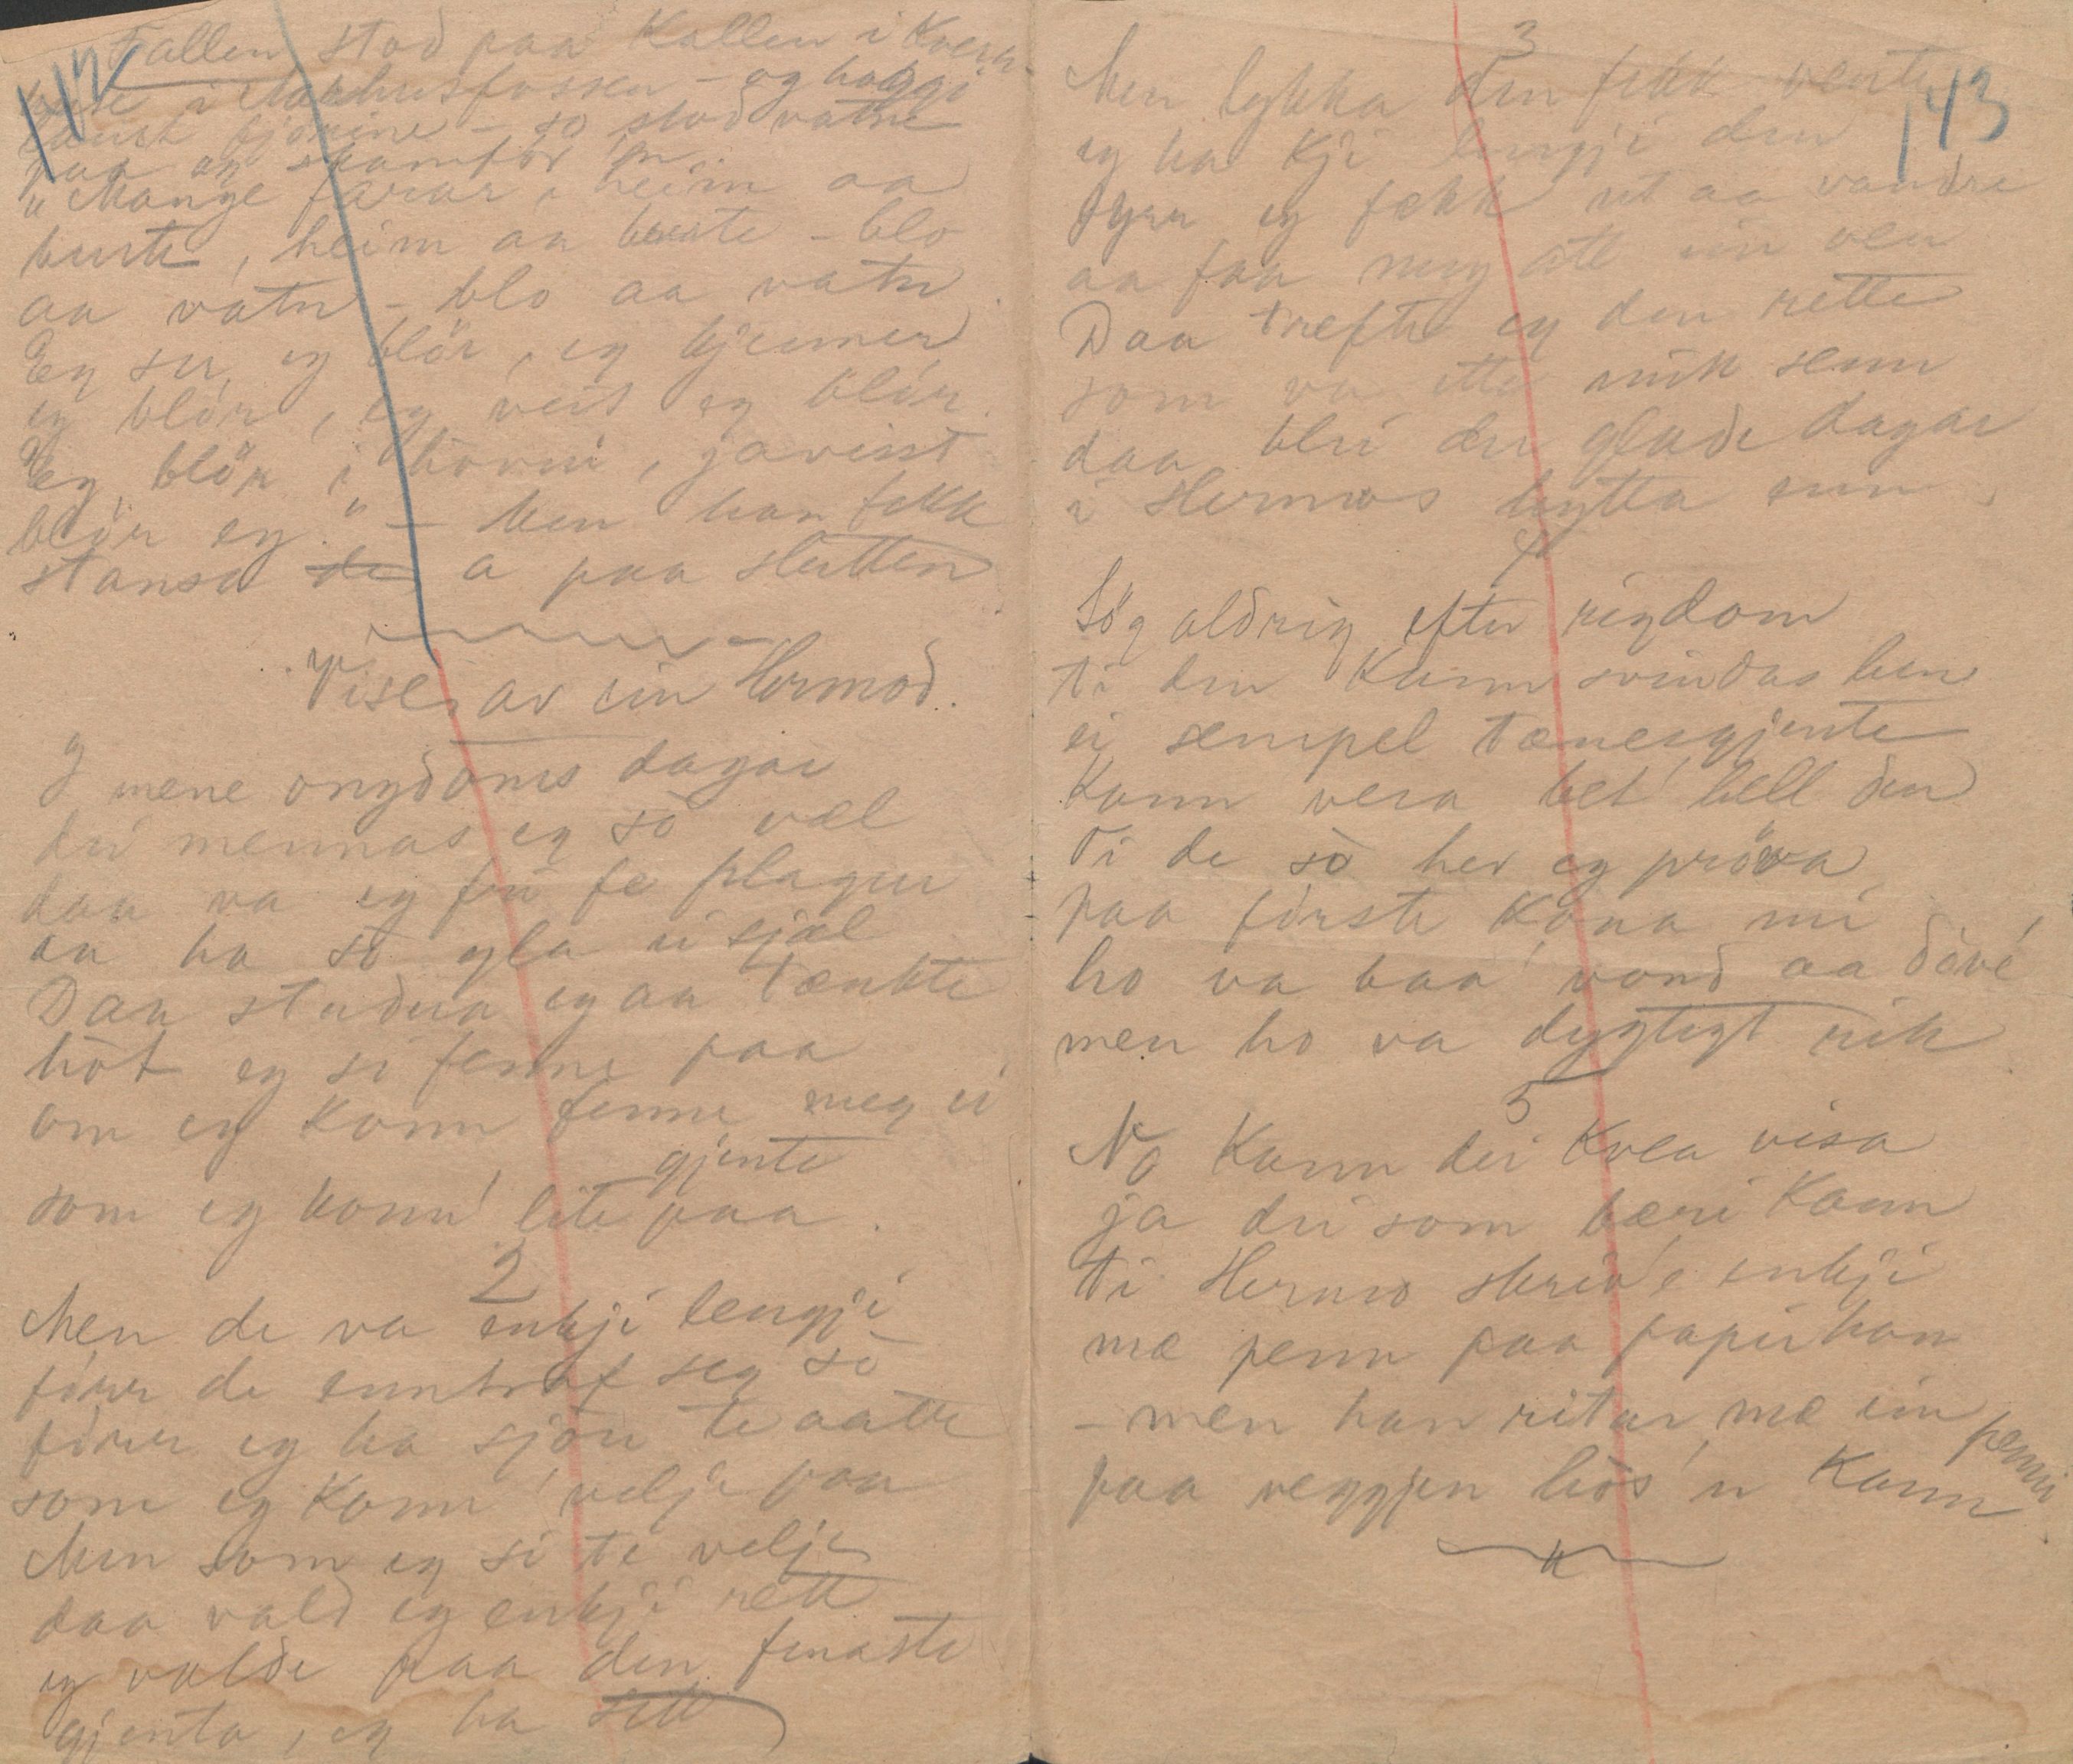 142
Fallen stod paa Kallen i Kvern-
i -fossen - og haggi
laust - so stod vatne
paa og skamfór 'n
"Mange farar, heim aa
burte, heim aa burte - blo
aa vatn - blo aa vatn.
Eg ser, eg blör, eg kjenner
eg blör, eg veit eg blör.
Eg blör i , javisst
blör eg." - Men han fekk
stansa de a paa slutten
Viser av ein Hermod.
I mene ongdoms dagar
dei mennas eg so væl
daa va eg fri fe plagur
aa ha so gla ei sjæl
Daa studera eg aa tænkte
hot eg si fenne paa
om eg konn fenne meg ei
gjente
som eg konn' lite paa.
2
Men de va enkji lengji
förr de enntraf seg so
förr eg ha sjou te aatte
som eg konn' velje paa
Men som eg si te velje
daa vald eg enkji rett
eg valde paa den finaste
gjenta, eg ha sett
143
3
Men lykka den fekk vente
eg ha kji lengji den
fyrr eg fekk ut aa vandre
aa faa meg att ein ven
Daa trefte eg den rette
som va ette mik senn
daa blei dei glade dagar
i Hermos hytta enn.
4
Sög aldrig efter rigdom
ti den kann svindas hen
ei sempel tænergjente
kann vera bet' hell den
Ti de so hev eg pröva
paa förste kona mi
ho va baa' vond aa
men ho va dygtigt rik
5
No kann dei kvea visa
ja dei som bæri kann
ti Hermo skriv'e enkji
mæ penn paa papir han
- men han ritar mæ ein penni
paa veggjen hos'n kann